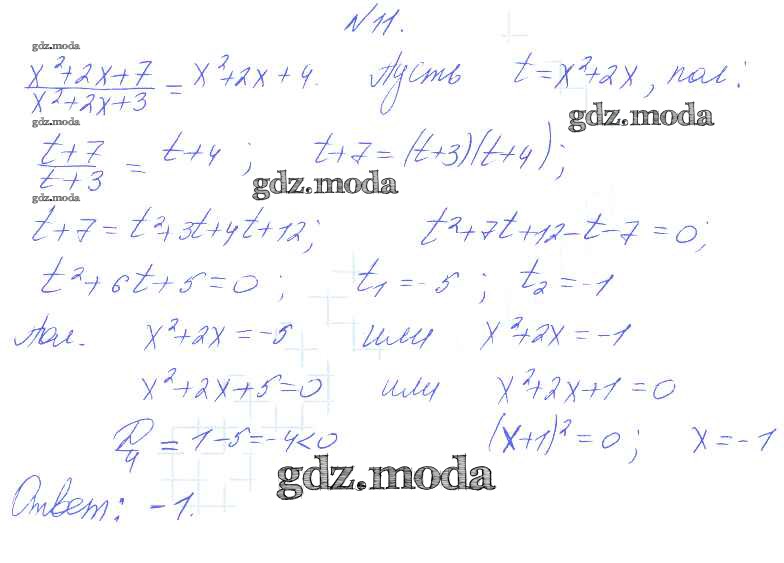 №11.
gdz.moda
(x²+2x+7)/(x²+2x+3) = x²+2x+4. Пусть t=x²+2x, пол:
gdz.moda
gdz.moda
(t+7)/(t+3) = t+4; t+7=(t+3)(t+4);
gdz.moda
gdz.moda
t+7=t²+3t+4t+12; t²+7t+12-t-7=0;
t²+6t+5=0; t₁=-5; t₂=-1
Пол. x²+2x=-5 или x²+2x=-1
x²+2x+5=0 или x²+2x+1=0
D/4=1-5=-4<0 (x+1)²=0; x=-1
gdz.moda
Ответ: -1.